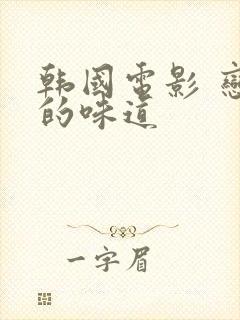 韩国电影 戀
的味道
一字眉